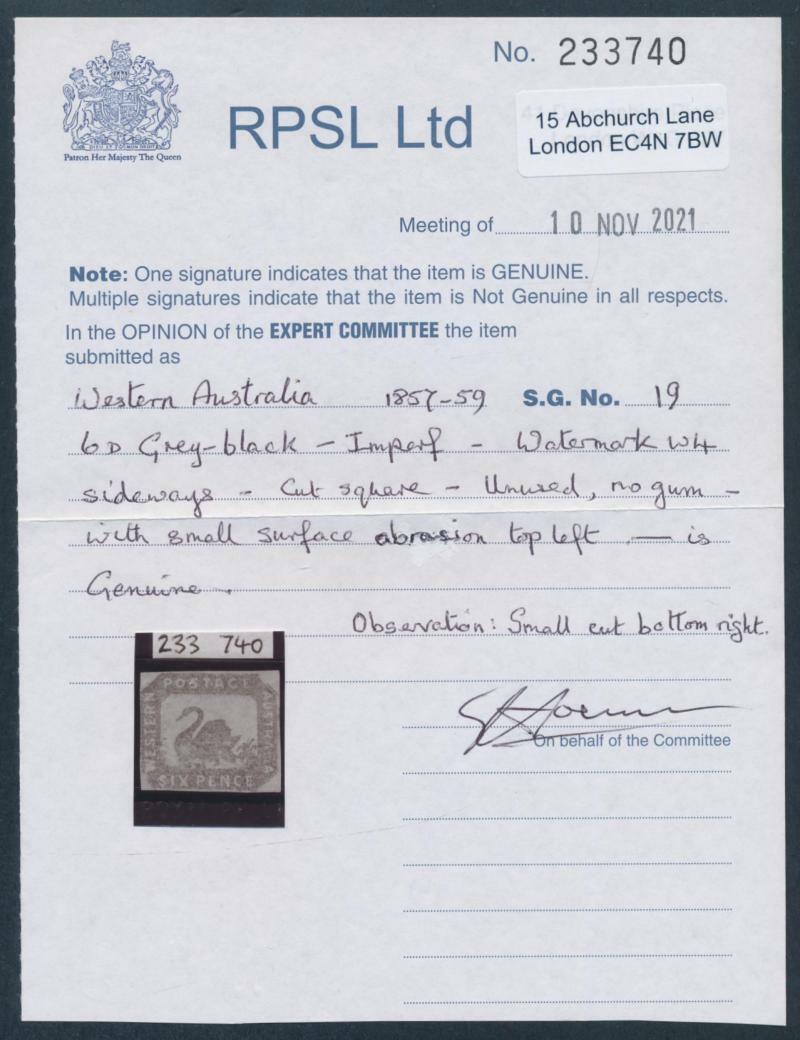 No. 233740
RPSL Ltd
15 Abchurch Lane
London EC4N 7BW
DIEU ET MON DROIT
Patron Her Majesty The Queen
Meeting of 10 NOV 2021
Note: One signature indicates that the item is GENUINE.
Multiple signatures indicate that the item is Not Genuine in all respects.
In the OPINION of the EXPERT COMMITTEE the item
submitted as
Western Australia 1857-59 S.G. No. 19
6D Grey-black - Imperf - Watermark W4
sideways - Cut square - Unused, no gum -
with small surface abrasion top left — is
Genuine.
Observation: Small cut bottom right.
233 740
POSTAGE
WESTERN
AUSTRALIA
SIX PENCE
On behalf of the Committee